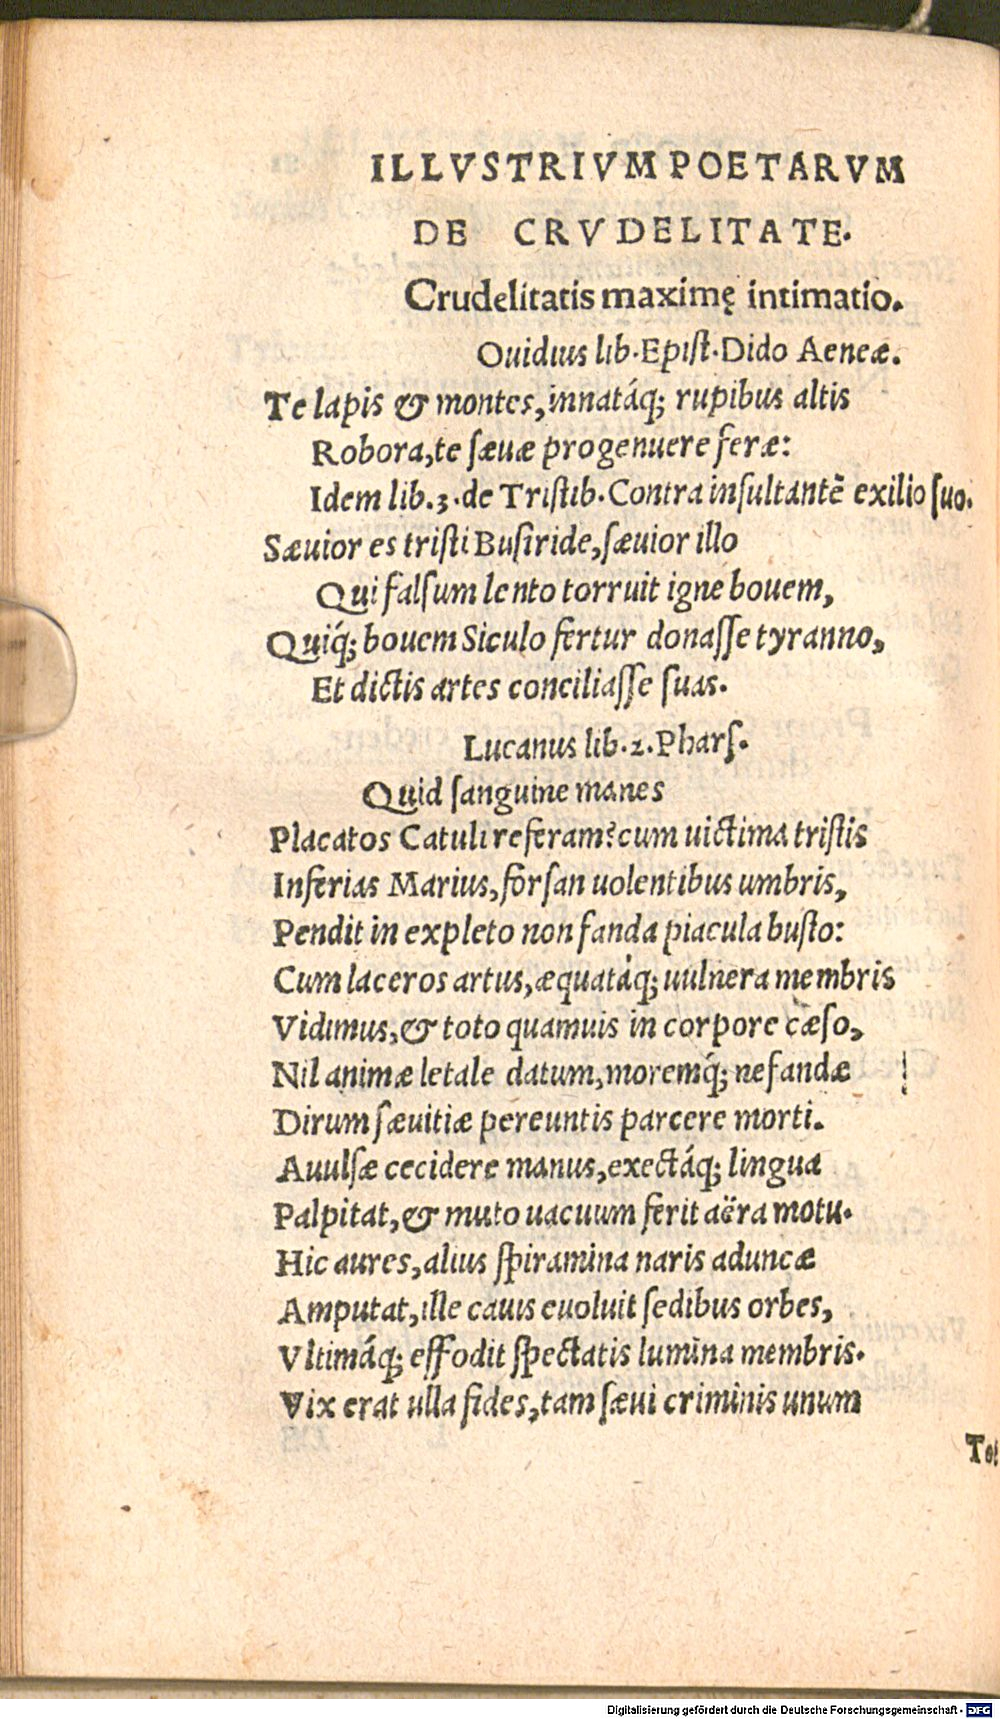 ILLVSTRIVM POETARVM
DE CRVDELITATE.
Crudelitatis maximę intimatio.
Ouidius lib.Epist.Dido Aeneæ.
Te lapis & montes, innatáq; rupibus altis
Robora, te sæuæ progenuere feræ:
Idem lib.3.de Tristib.Contra insultantē exilio suo.
Sæuior es tristi Busiride, sæuior illo
Qui falsum lento torruit igne bouem,
Quíq; bouem Siculo fertur donasse tyranno,
Et dictis artes conciliasse suas.
Lucanus lib.2.Phars.
Quid sanguine manes
Placatos Catuli referam? cum uictima tristis
Inferias Marius, forsan uolentibus umbris,
Pendit in expleto non fanda piacula busto:
Cum laceros artus, æquatáq; uulnera membris
Vidimus, & toto quamuis in corpore cæso,
Nil animæ letale datum, moremq́; nefandæ
Dirum sæuitiæ pereuntis parcere morti.
Auulsæ cecidere manus, exectáq; lingua
Palpitat, & muto uacuum ferit aëra motu.
Hic aures, alius spiramina naris aduncæ
Amputat, ille cauis euoluit sedibus orbes,
Vltimáq; effodit spectatis lumina membris.
Vix erat ulla fides, tam sæui criminis unum
Tot
Digitalisierung gefördert durch die Deutsche Forschungsgemeinschaft - DFG